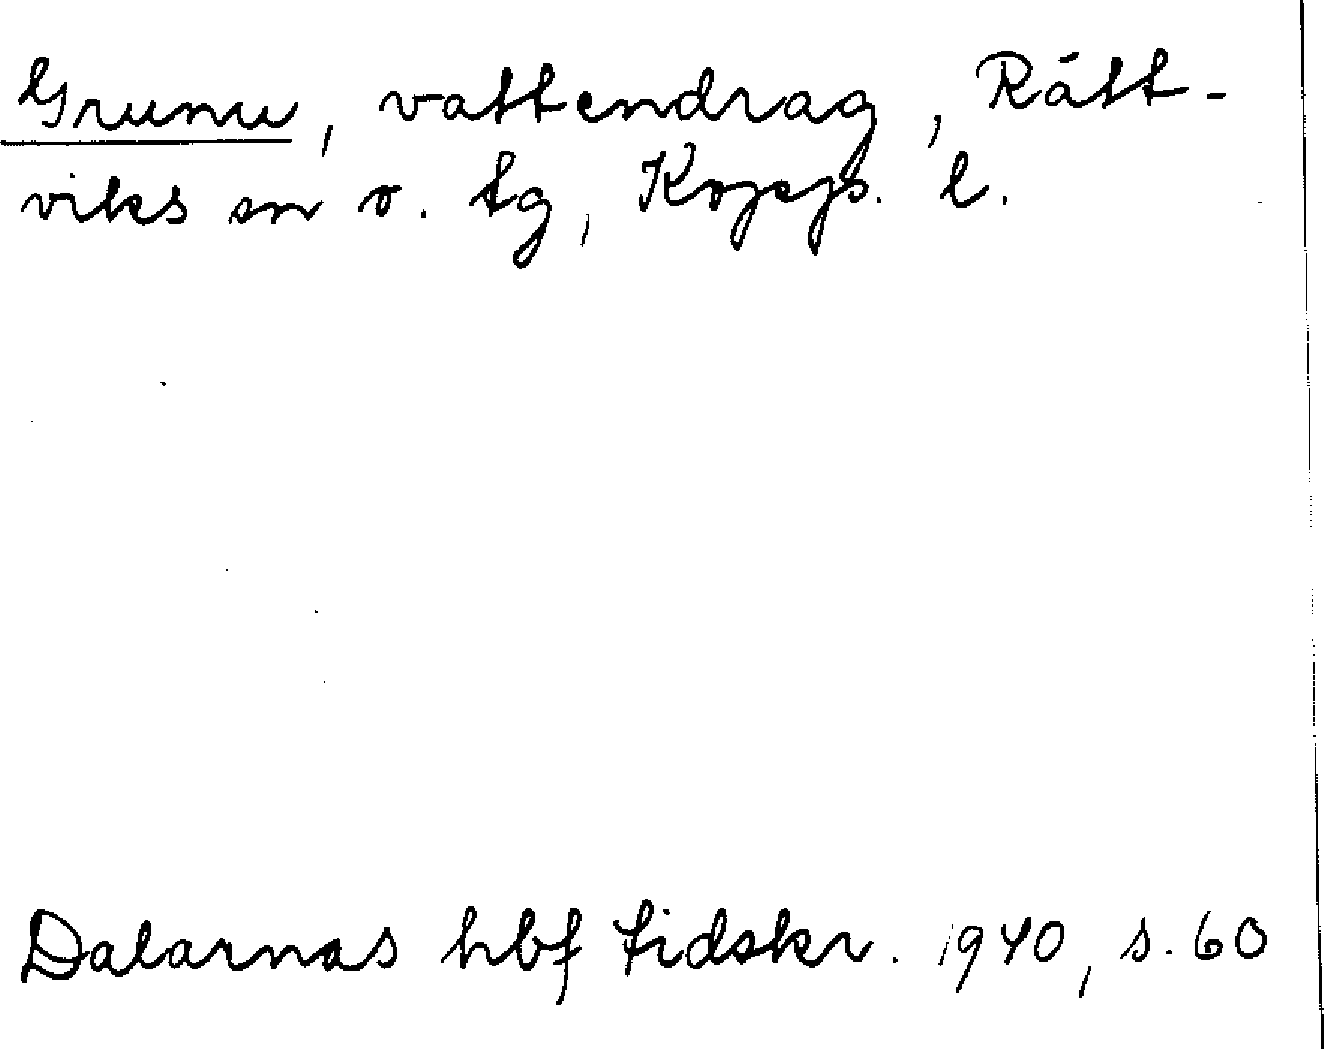 Grunu, vattendrag, Rätt-
viks sn o. tg, Kopps. l.
Dalarnas hbf tidskr. 1940, s. 60